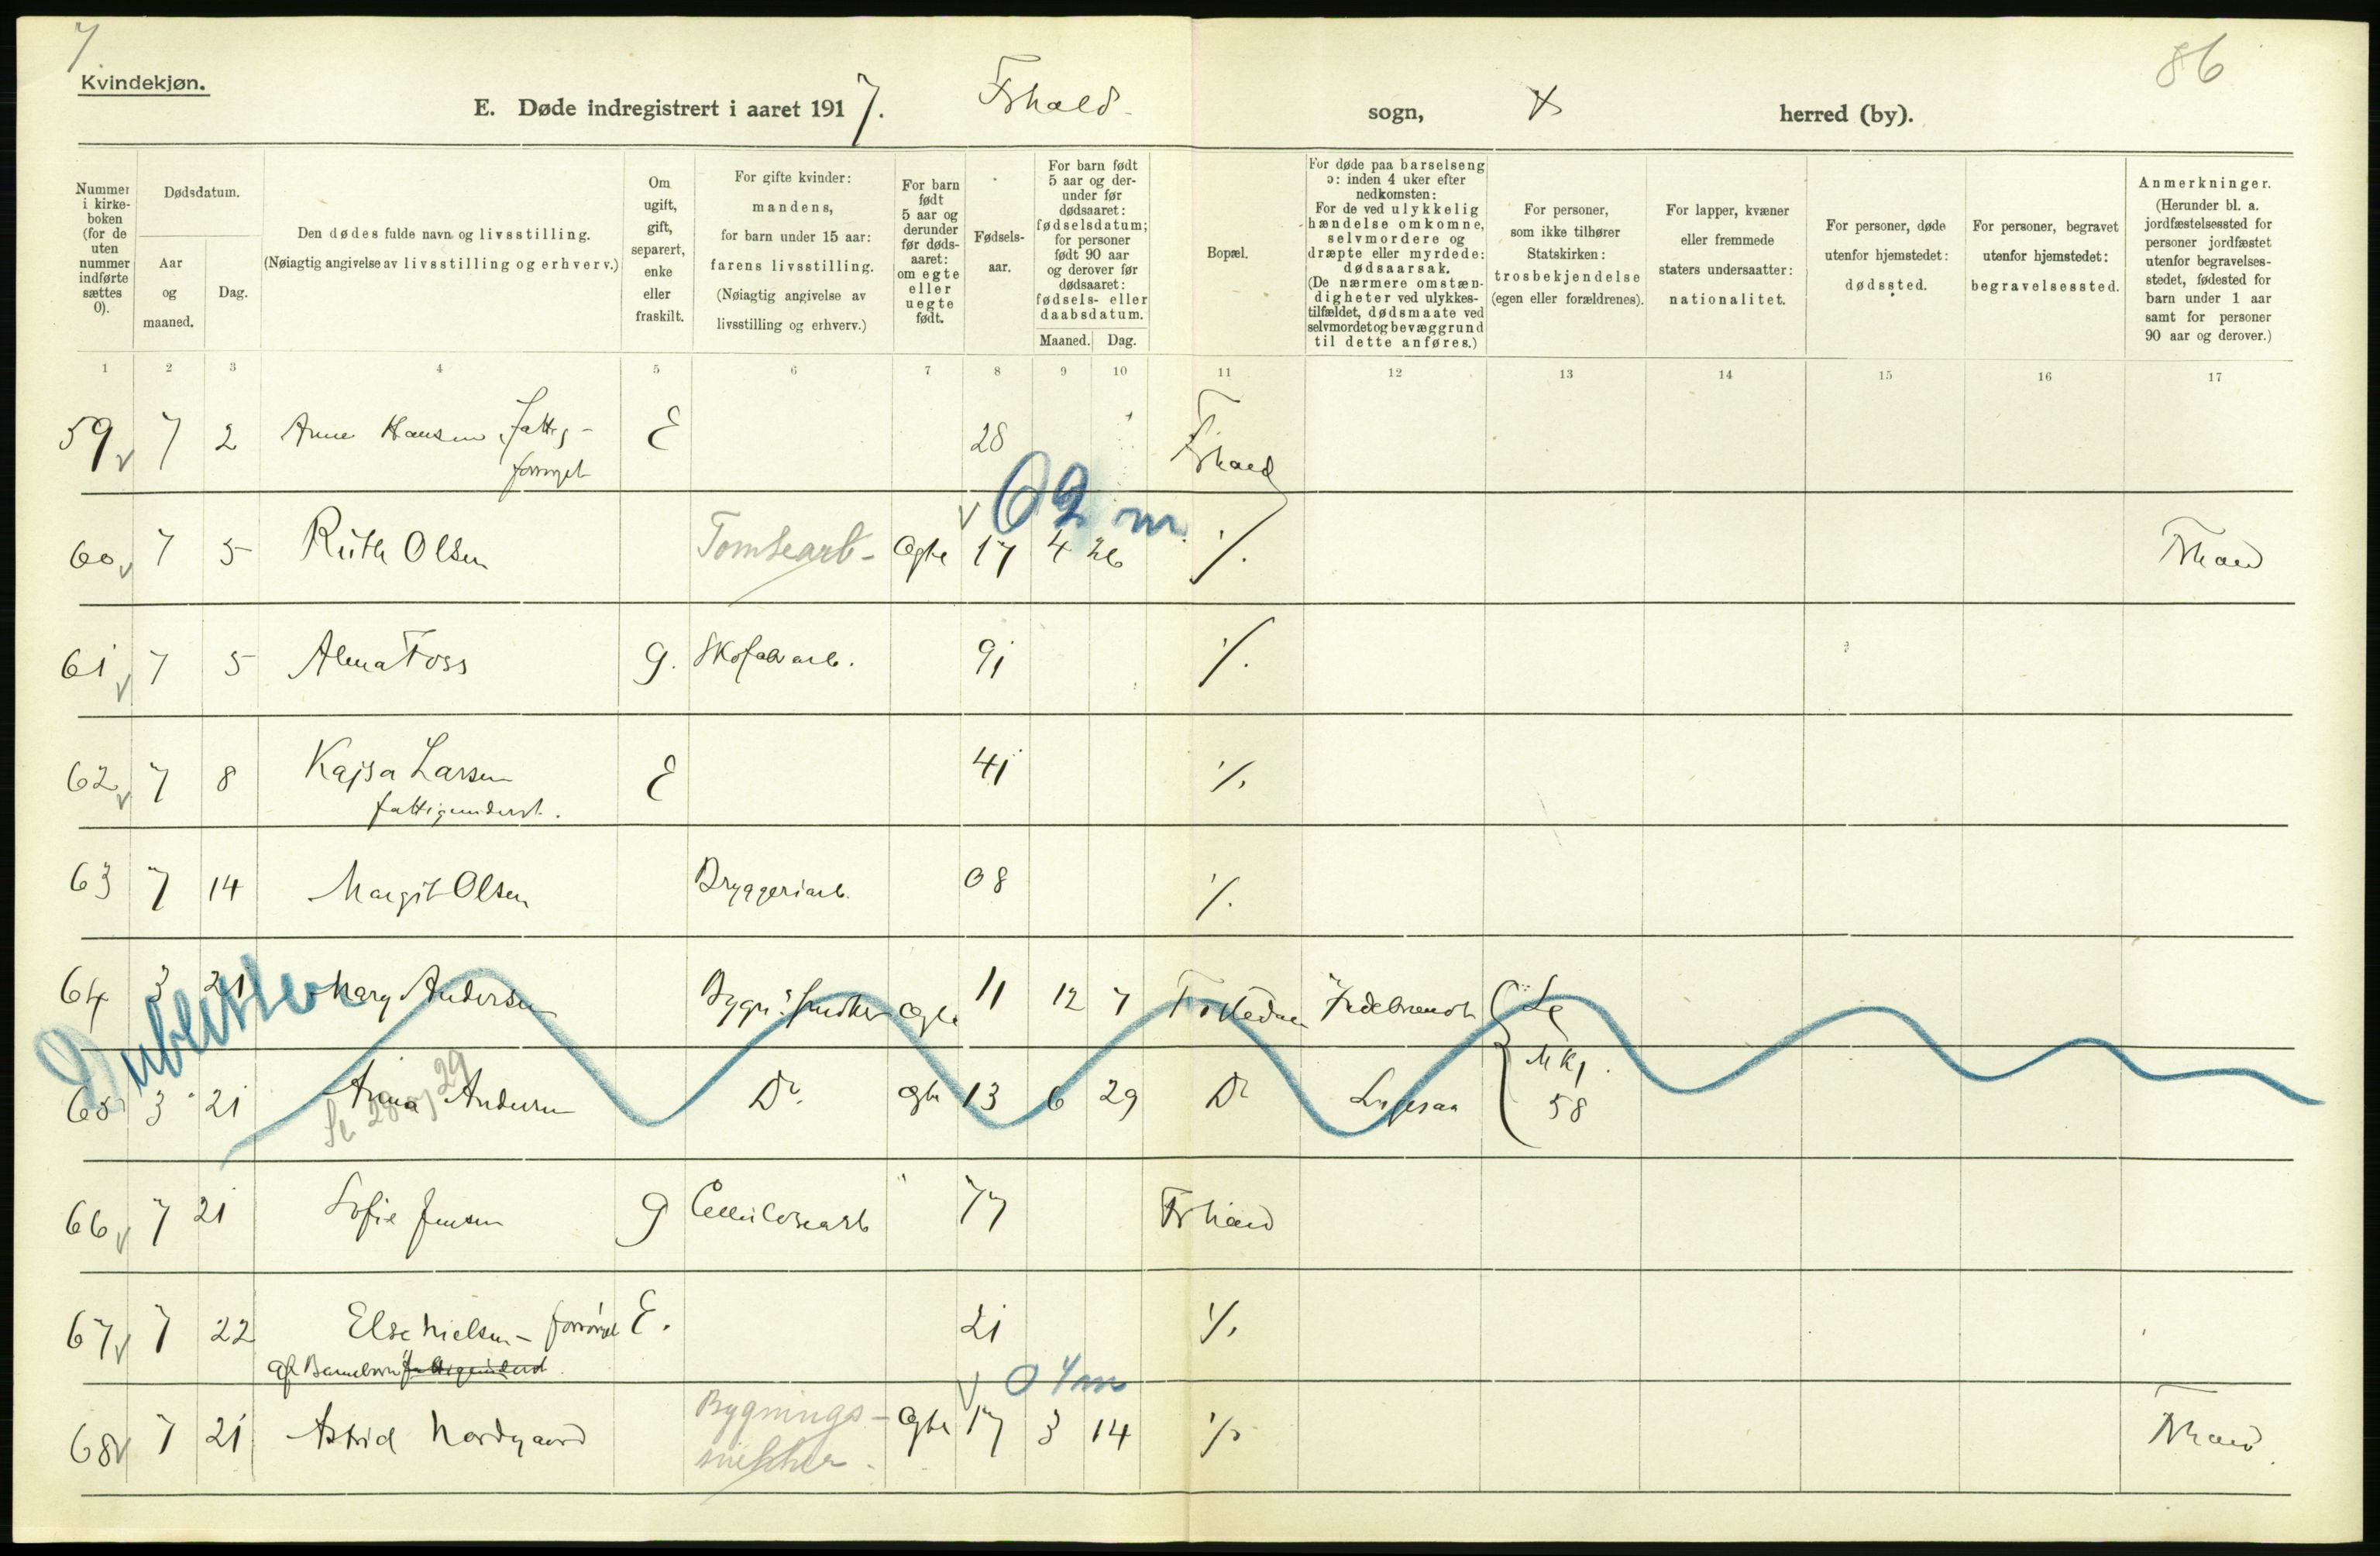 7
86
Kvindekjøn.
E. Døde indregistrert i aaret 1917. Frhald sogn, herred (by).
Nummer i kirkeboken (for de uten nummer indførte sættes 0).
Dødsdatum.
Aar og maaned.
Dag.
Den dødes fulde navn og livsstilling.
(Nøiagtig angivelse av livsstilling og erhverv.)
Om ugift, gift, separert, enke eller fraskilt.
For gifte kvinder: mandens, for barn under 15 aar: farens livsstilling. (Nøiagtig angivelse av livsstilling og erhverv.)
For barn født 5 aar og derunder før dødsaaret: om egte eller uegte født.
Fødselsaar.
For barn født 5 aar og derunder før dødsaaret: fødselsdatum; for personer født 90 aar og derover før dødsaaret: fødsels- eller daabsdatum.
Maaned. Dag.
Bopæl.
For døde paa barselseng ɔ: inden 4 uker efter nedkomsten:
For de ved ulykkelig hændelse omkomne, selvmordere og dræpte eller myrdede: dødsaarsak.
(De nærmere omstændigheter ved ulykkestilfældet, dødsmaate ved selvmordet og bevæggrund til dette anføres.)
For personer, som ikke tilhører Statskirken: trosbekjendelse (egen eller forældrenes).
For lapper, kvæner eller fremmede staters undersaatter: nationalitet.
For personer, døde utenfor hjemstedet: dødssted.
For personer, begravet utenfor hjemstedet: begravelsessted.
Anmerkninger. (Herunder bl. a. jordfæstelsessted for personer jordfæstet utenfor begravelsesstedet, fødested for barn under 1 aar samt for personer 90 aar og derover.)
1 2 3 4 5 6 7 8 9 10 11 12 13 14 15 16 17
59 7 2 Anne Hansen, fattig- E 28 Frhald
forsørget
0 2 m
60 7 5 Ruth Olsen Tomtearb- Egte 17 4 26 ./. Frhald
61 7 5 Alma Foss g. Skofabarb. 91 ./.
62 7 8 Kajsa Larsen E 41 ./.
fattigunderst.
63 7 14 Margit Olsen Bryggeriarb. 08 ./.
Dubletter
64 3 21 Mary Andersen Bygn. snedker Egte 11 12 7 Ildebrand
65 3 21 Anna Andersen Do. Egte 13 6 29 Do
58
66 7 21 Sofie Jensen g Cellulosearb 77 Frhald
67 7 22 Else Nielsen - forsørget E. 21 ./.
af Barnebarn fattigunderst
0 4 m
68 7 21 Astrid Nordgaard Bygnings- Egte 17 3 14 ./. Frhald
snekker